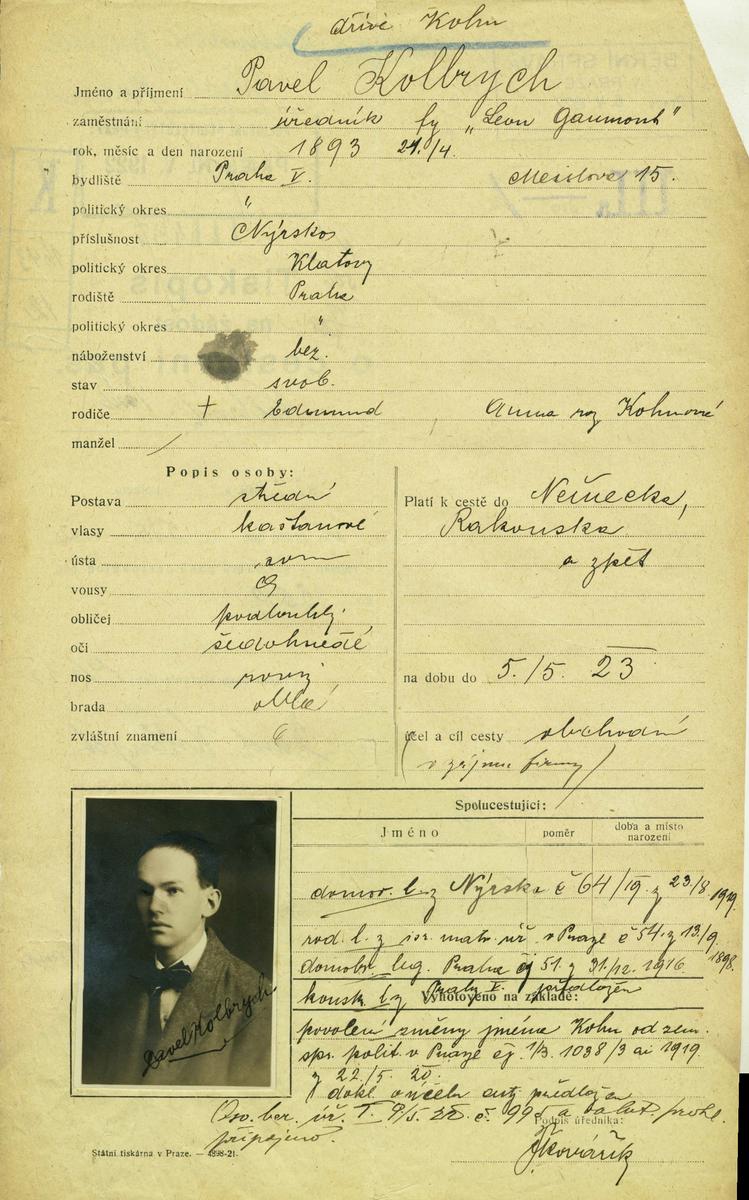 dříve Kohn
Jméno a příjmení Pavel Kolbrych
zaměstnání úředník fy „Leon Gaumont"
rok, měsíc a den narození 1893 24./4.
bydliště Praha V. 15.
politický okres "
příslušnost Nýrsko
politický okres Klatovy
rodiště Praha
politický okres "
náboženství bez.
stav svob.
rodiče + Edmund, Anna roz Kohnová
manžel /
Popis osoby:
Postava střední
vlasy kaštanové
ústa
vousy
obličej podlouhlý.
oči šedohnědé
nos rovný
brada oblá
zvláštní znamení
Platí k cestě do Německa,
Rakouska
a zpět
na dobu do 5./5. 23
účel a cíl cesty obchodní
(v zájmu firmy)
Spolucestující:
Jméno poměr doba a místo narození
domov. l. z Nýrska č 64/19. z 23./8 1919.
rod. l. z isr. matr. úř. v Praze č 54. z 13/9. 1898.
domobr. leg. Praha čj 51. z 31./12. 1916
konsk. l z Prahy V. předložen
Vyhotoveno na základě:
povolení změny jména Kohn od zem.
spr. polit. v Praze čj. 1/3. 1038/3 ai 1919
z 22/5. 20.
dokl. o účelu cesty předložen
Oso. ber. úř. I. 9/5. 22. č. 995 a prohl.
připojeno.
Podpis úředníka:
Kovářík
Pavel Kolbrych
Státní tiskárna v Praze. — 4898-21.